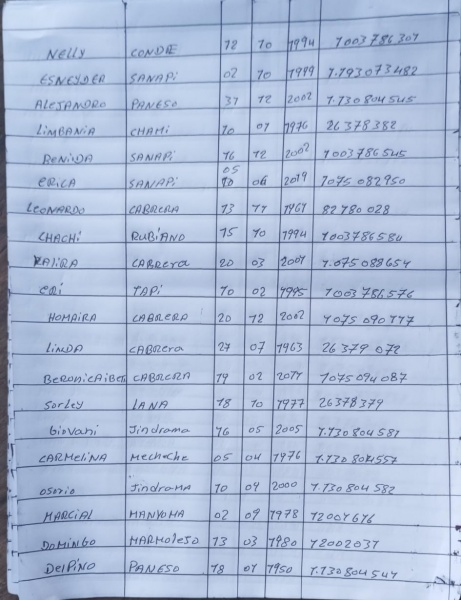 Nelly CONDE 12 10 1994 1003786307
ESNEYDER SANAPi 02 10 1999 1.193073482
ALEJANDRO PANESO 31 12 2002 1.130804545
LIMBANIA CHAMI 10 01 1976 26378382
RENIDA SANAPI 16 12 2002 1003786545
ERICA SANAPI 05 06 2019 1075082950
LEONARDO CABRERA 13 11 1961 82780028
CHACHI RUBIANO 15 10 1994 1003786584
CABRERA 20 03 2007 1.075089654
ERI TAPI 10 02 1995 1003786576
HOMAIRA CABRERA 20 12 2002 1075090777
LINDA CABRERA 27 07 1963 26379072
BERONICAIBETH CABRERA 19 02 2011 1075094087
Sorley LANA 18 10 1977 26378379
Giovani Jindrama 16 05 2005 1.130804581
CARMELINA Mecheche 05 04 1976 1.130804557
OSORIO JindramA 10 04 2000 1.130804582
MARCIAL MANYOMA 02 09 1978 12001676
DOMINGO MARMOLESO 13 03 1980 12002037
DelPiNO PANESO 18 01 1950 1.130804547